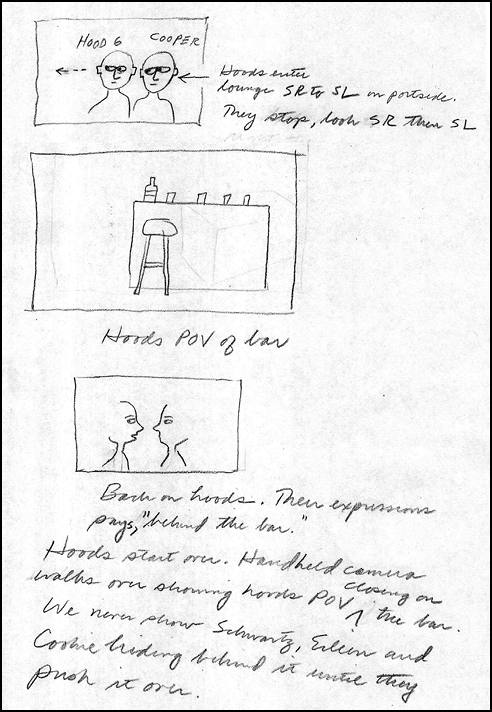 HOOD 6 COOPER
Hoods enter
lounge SR to SL on portside.
They stop, look SR then SL
Hoods POV of bar
Back on hoods. Their expressions
says, "behind the bar."
Hoods start over. Handheld camera
closing on
walks over showing hoods POV ∧ the bar.
We never show Schwartz, Eileen and
Cookie hiding behind it until they
push it over.